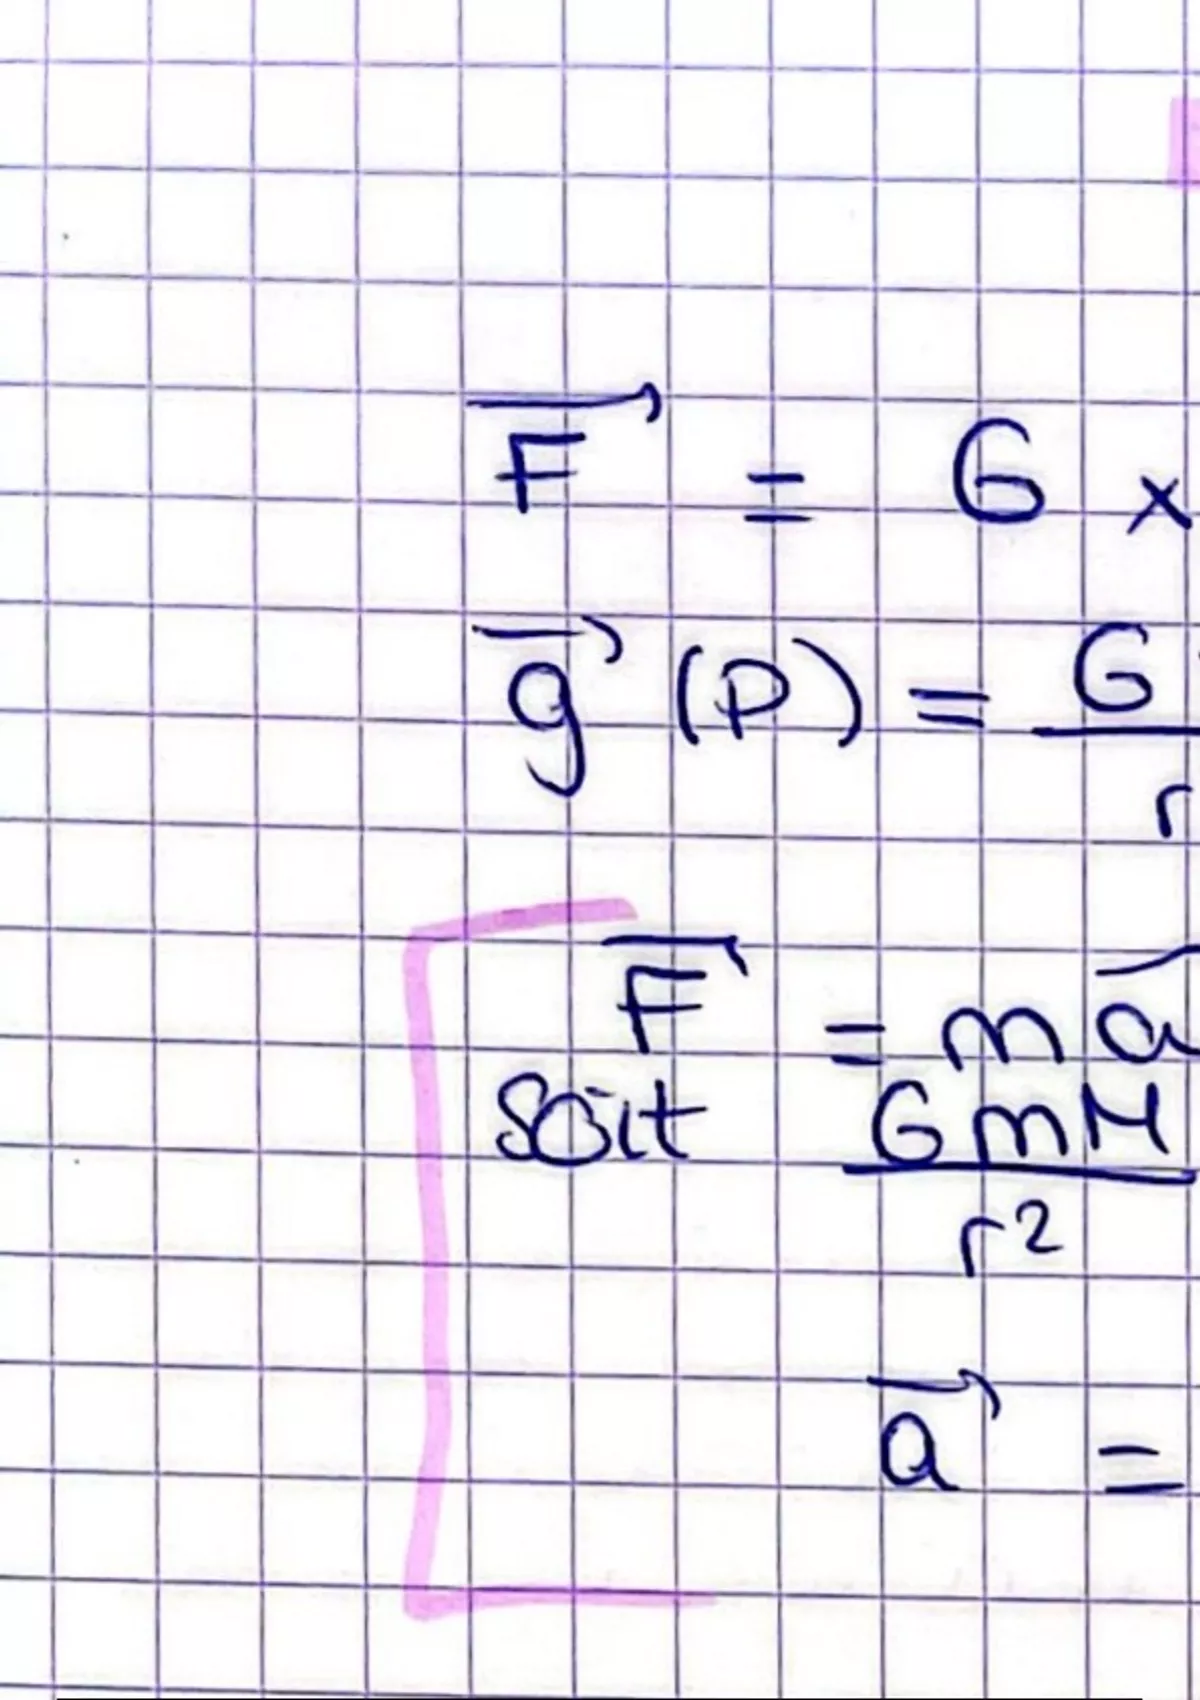 F⃗ = G ×
g⃗ (P) = G / r
F⃗ = m a
soit GmM / r²
a⃗ =